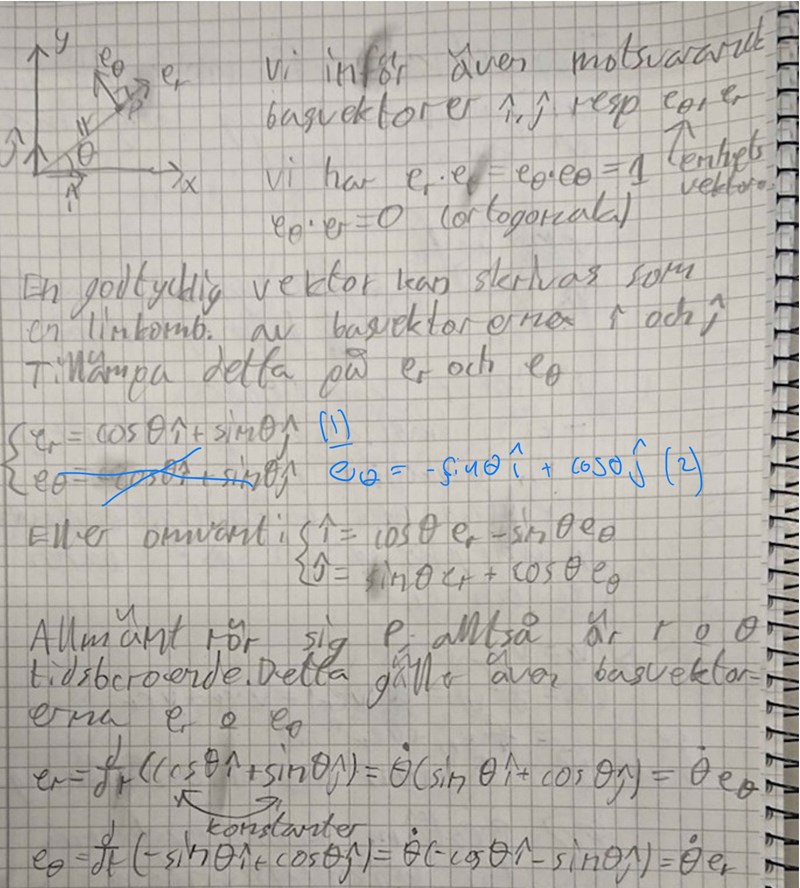 y
e_θ
e_r
P
r
θ
ĵ
x
î
Vi inför även motsvarande
basvektorer î, ĵ resp e_θ, e_r
Vi har e_r·e_r = e_θ·e_θ = 1 (enhets
vektorer
e_θ·e_r = 0 (ortogonala)
En godtycklig vektor kan skrivas som
en linkomb. av basvektorerna î och ĵ
Tillämpa detta på e_r och e_θ
{ e_r = cosθ î + sinθ ĵ (1)
{ e_θ = cosθ î + sinθ ĵ e_θ = -sinθ î + cosθ ĵ (2)
Eller omvänt: { î = cosθ e_r - sinθ e_θ
{ ĵ = sinθ e_r + cosθ e_θ
Allmänt rör sig P, alltså är r o θ
tidsberoende. Detta gäller även basvektor-
erna e_r o e_θ
e_r = d/dt (cosθ î + sinθ ĵ) = θ̇(sinθ î + cosθ ĵ) = θ̇ e_θ
konstanter
e_θ = d/dt (-sinθ î + cosθ ĵ) = θ̇(-cosθ î - sinθ ĵ) = θ̇ e_r